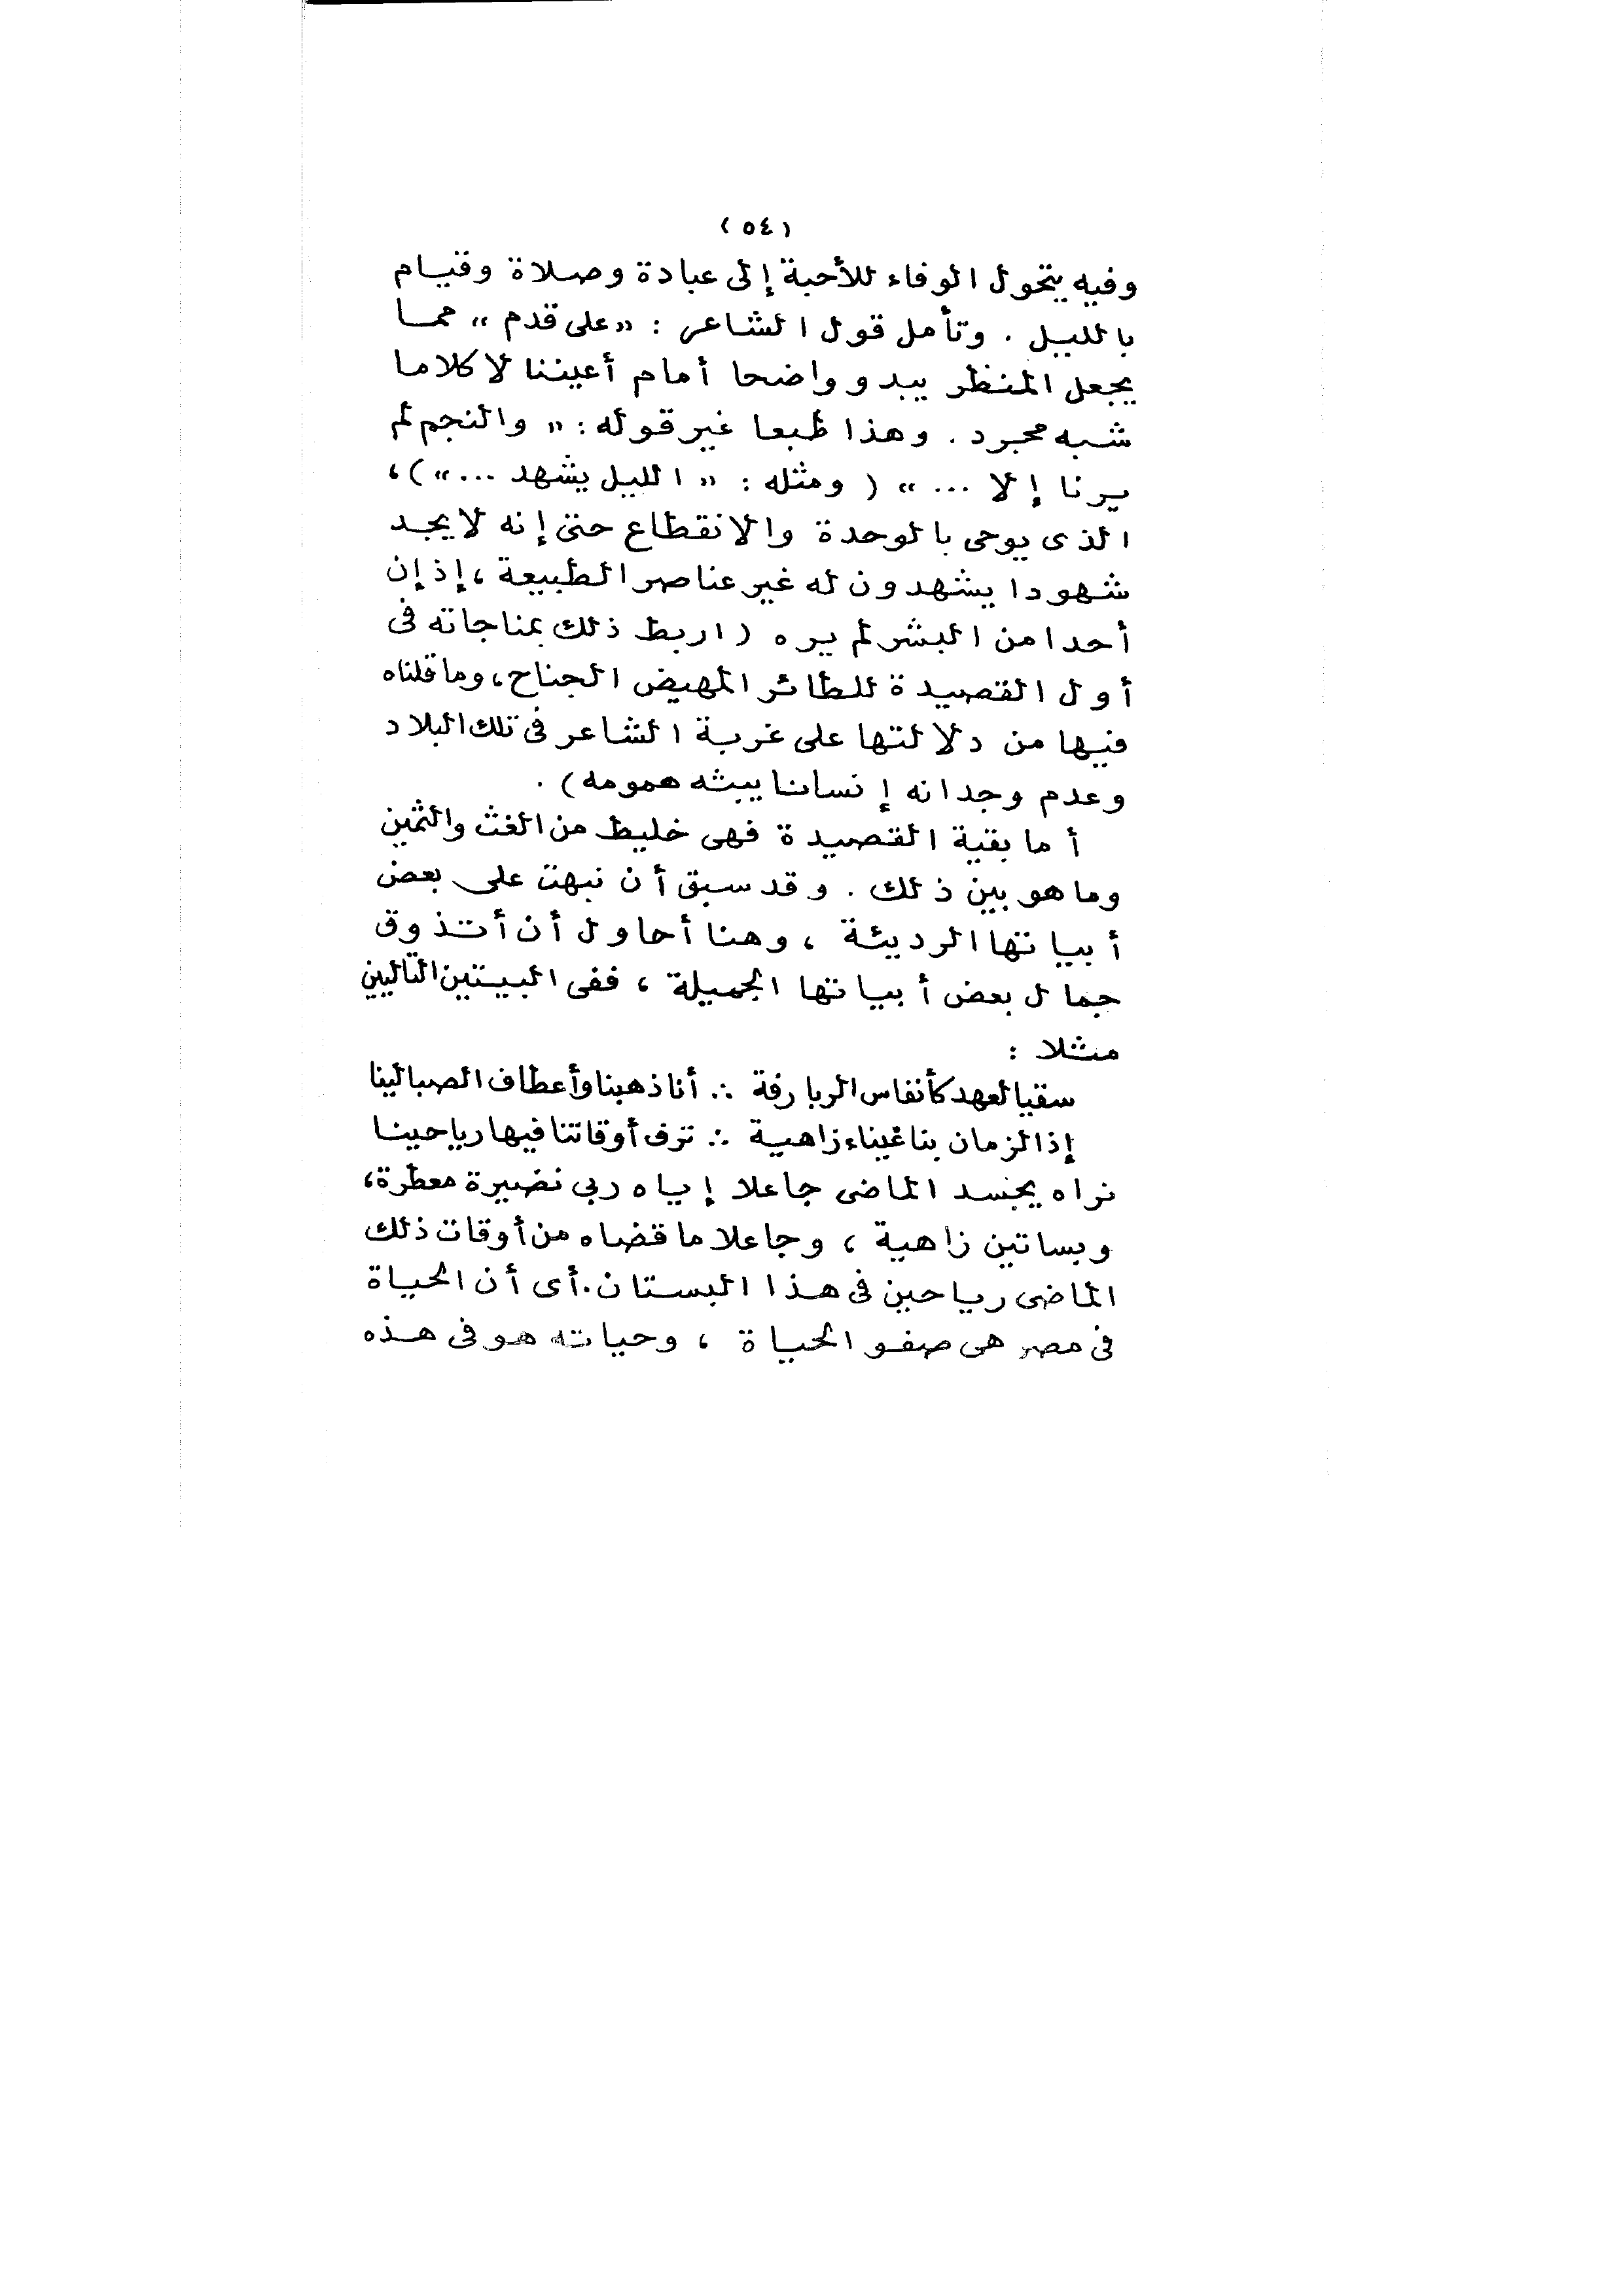 (٥٤)
وفيه يتحول الوفاء للأحبة إلى عبادة وصلاة وقيام
بالليل . وتأمل قول الشاعر : « على قدم » مما
يجعل المنظر يبدو واضحا أمام أعيننا لا كلاما
شبه مجرد . وهذا طبعا غير قوله : « والنجم لم
يرنا إلا ... » ( ومثله : « الليل يشهد ... » ) ،
الذى يوحى بالوحدة والانقطاع حتى إنه لا يجد
شهودا يشهدون له غير عناصر الطبيعة ، إذ إن
أحدا من البشر لم يره ( اربط ذلك بمناجاته فى
أول القصيدة للطائر المهيض الجناح ، وما قلناه
فيها من دلالتها على غربة الشاعر فى تلك البلاد
وعدم وجدانه إنسانا يبثه همومه ) .
أما بقية القصيدة فهى خليط من الغث والثمين
وما هو بين ذلك . وقد سبق أن نبهت على بعض
أبياتها الرديئة ، وهنا أحاول أن أتذوق
جمال بعض أبياتها الجميلة ، ففى البيتين التاليين
مثلا :
سقيا لعهد كأنفاس الربا رفة ∴ أنا ذهبنا وأعطاف الصبا لينا
إذ الزمان بنا غيناء زاهية ∴ ترف أوقاتنا فيها رياحينا
نراه يجسد الماضى جاعلا إياه ربى نضيرة معطرة ،
وبساتين زاهية ، وجاعلا ما قضاه من أوقات ذلك
الماضى رياحين فى هذا البستان . أى أن الحياة
فى مصر هى صفو الحياة ، وحياته هو فى هذه